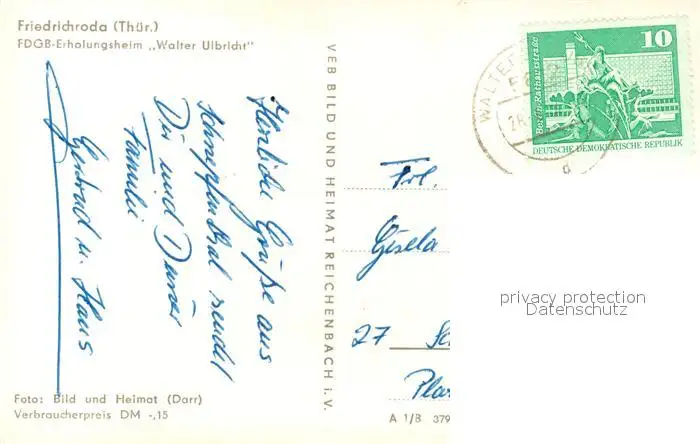 Friedrichroda (Thür.)
FDGB-Erholungsheim „Walter Ulbricht"
Herzliche Grüße aus
Schnepfenthal sendet
Dir und Deiner
Familie
Gertrud u. Hans
VEB BILD UND HEIMAT REICHENBACH i. V.
Foto: Bild und Heimat (Darr)
Verbraucherpreis DM -,15
A 1/B 379
10
Berlin, Rathausstraße
DEUTSCHE DEMOKRATISCHE REPUBLIK
WALTE
Frl.
Gisela
27
privacy protection
Datenschutz